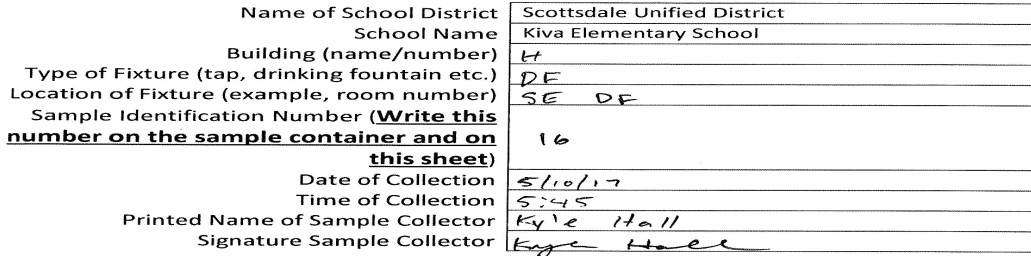 Name of School District Scottsdale Unified District
School Name Kiva Elementary School
Building (name/number) H
Type of Fixture (tap, drinking fountain etc.) DF
Location of Fixture (example, room number) SE DF
Sample Identification Number (Write this
number on the sample container and on 16
this sheet)
Date of Collection 5/10/17
Time of Collection 5:45
Printed Name of Sample Collector Kyle Hall
Signature Sample Collector Kyle Hall